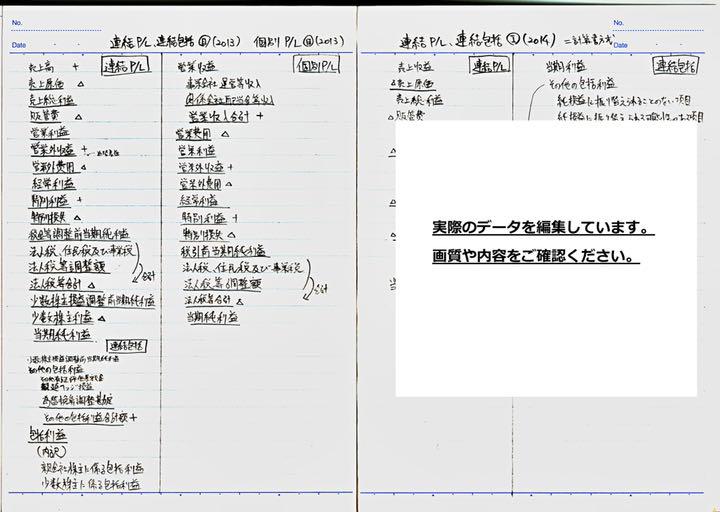 No.
Date
連結P/L、連結包括 (2013) 個別P/L (2013)
売上高 +
連結P/L
売上原価 △
売上総利益
販管費 △
営業利益
営業外収益 +
営業外費用 △
経常利益
特別利益 +
特別損失 △
税金等調整前当期純利益
法人税、住民税及び事業税
法人税等調整額
合計
法人税等合計 △
少数株主損益調整前当期純利益
少数株主利益 △
当期純利益
連結包括
少数株主損益調整前当期純利益
その他の包括利益
その他有価証券評価差額金
繰延ヘッジ損益
為替換算調整勘定
その他の包括利益合計額 +
包括利益
(内訳)
親会社株主に係る包括利益
少数株主に係る包括利益
営業収益
個別P/L
関係会社配当金収入
営業収入合計 +
営業費用 △
営業利益
営業外収益 +
営業外費用 △
経常利益
特別利益 +
特別損失 △
税引前当期純利益
法人税、住民税及び事業税
法人税等調整額
合計
法人税等合計 △
当期純利益
No.
Date
連結P/L、連結包括 (2014) =計算書方式
売上収益
連結P/L
△売上原価
売上総利益
△販管費
当期利益
連結包括
その他の包括利益
純損益に振り替えられることのない項目
純損益に振り替えられる可能性のある項目
実際のデータを編集しています。
画質や内容をご確認ください。